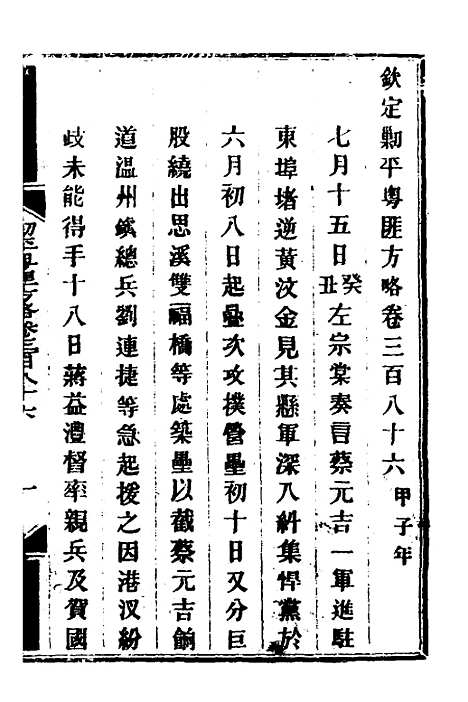 欽定勦平粵匪方略卷三百八十六 甲子年
七月十五日癸丑左宗棠奏言蔡元吉一軍進駐
東埠堵逆黃汶金見其懸軍深入糾集悍黨於
六月初八日起疊次攻撲營壘初十日又分巨
股繞出思溪雙福橋等處築壘以截蔡元吉餉
道溫州鎮總兵劉連捷等急起援之因港汊紛
歧未能得手十八日蔣益澧督率親兵及賀國
欽定勦平粵匪方略卷三百八十六
一